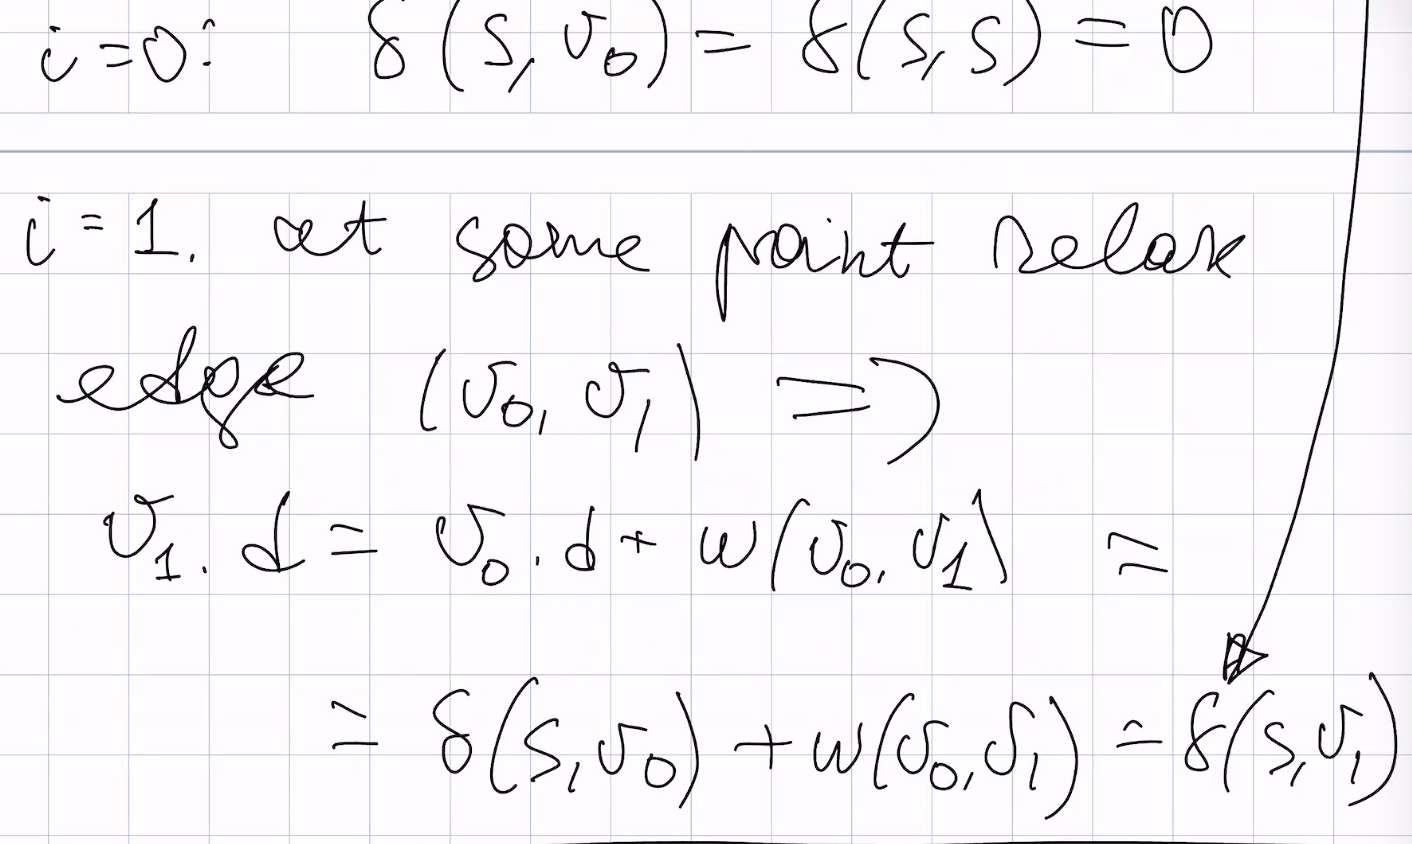 i=0: δ(s, v₀) = δ(s, s) = 0
i = 1. at some point relax
edge (v₀, v₁) =>
v₁.d = v₀.d + w(v₀, v₁) =
= δ(s, v₀) + w(v₀, v₁) = δ(s, v₁)